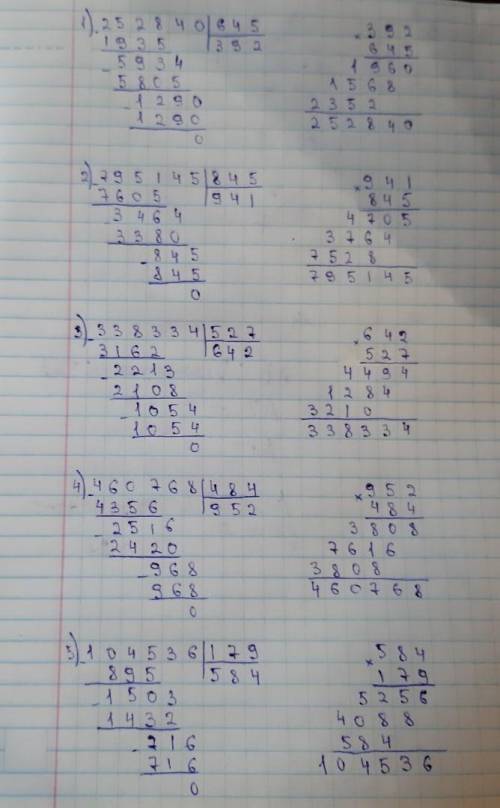 1) 252840 645
1935 392
5934
5805
1290
1290
0
× 392
645
1960
1568
2352
252840
2) 795145 845
7605 941
3464
3380
845
845
0
× 941
845
4705
3764
7528
795145
3) 338334 527
3162 642
2213
2108
1054
1054
0
× 642
527
4494
1284
3210
338334
4) 460768 484
4356 952
2516
2420
968
968
0
× 952
484
3808
7616
3808
460768
5) 104536 179
895 584
1503
1432
716
716
0
× 584
179
5256
4088
584
104536